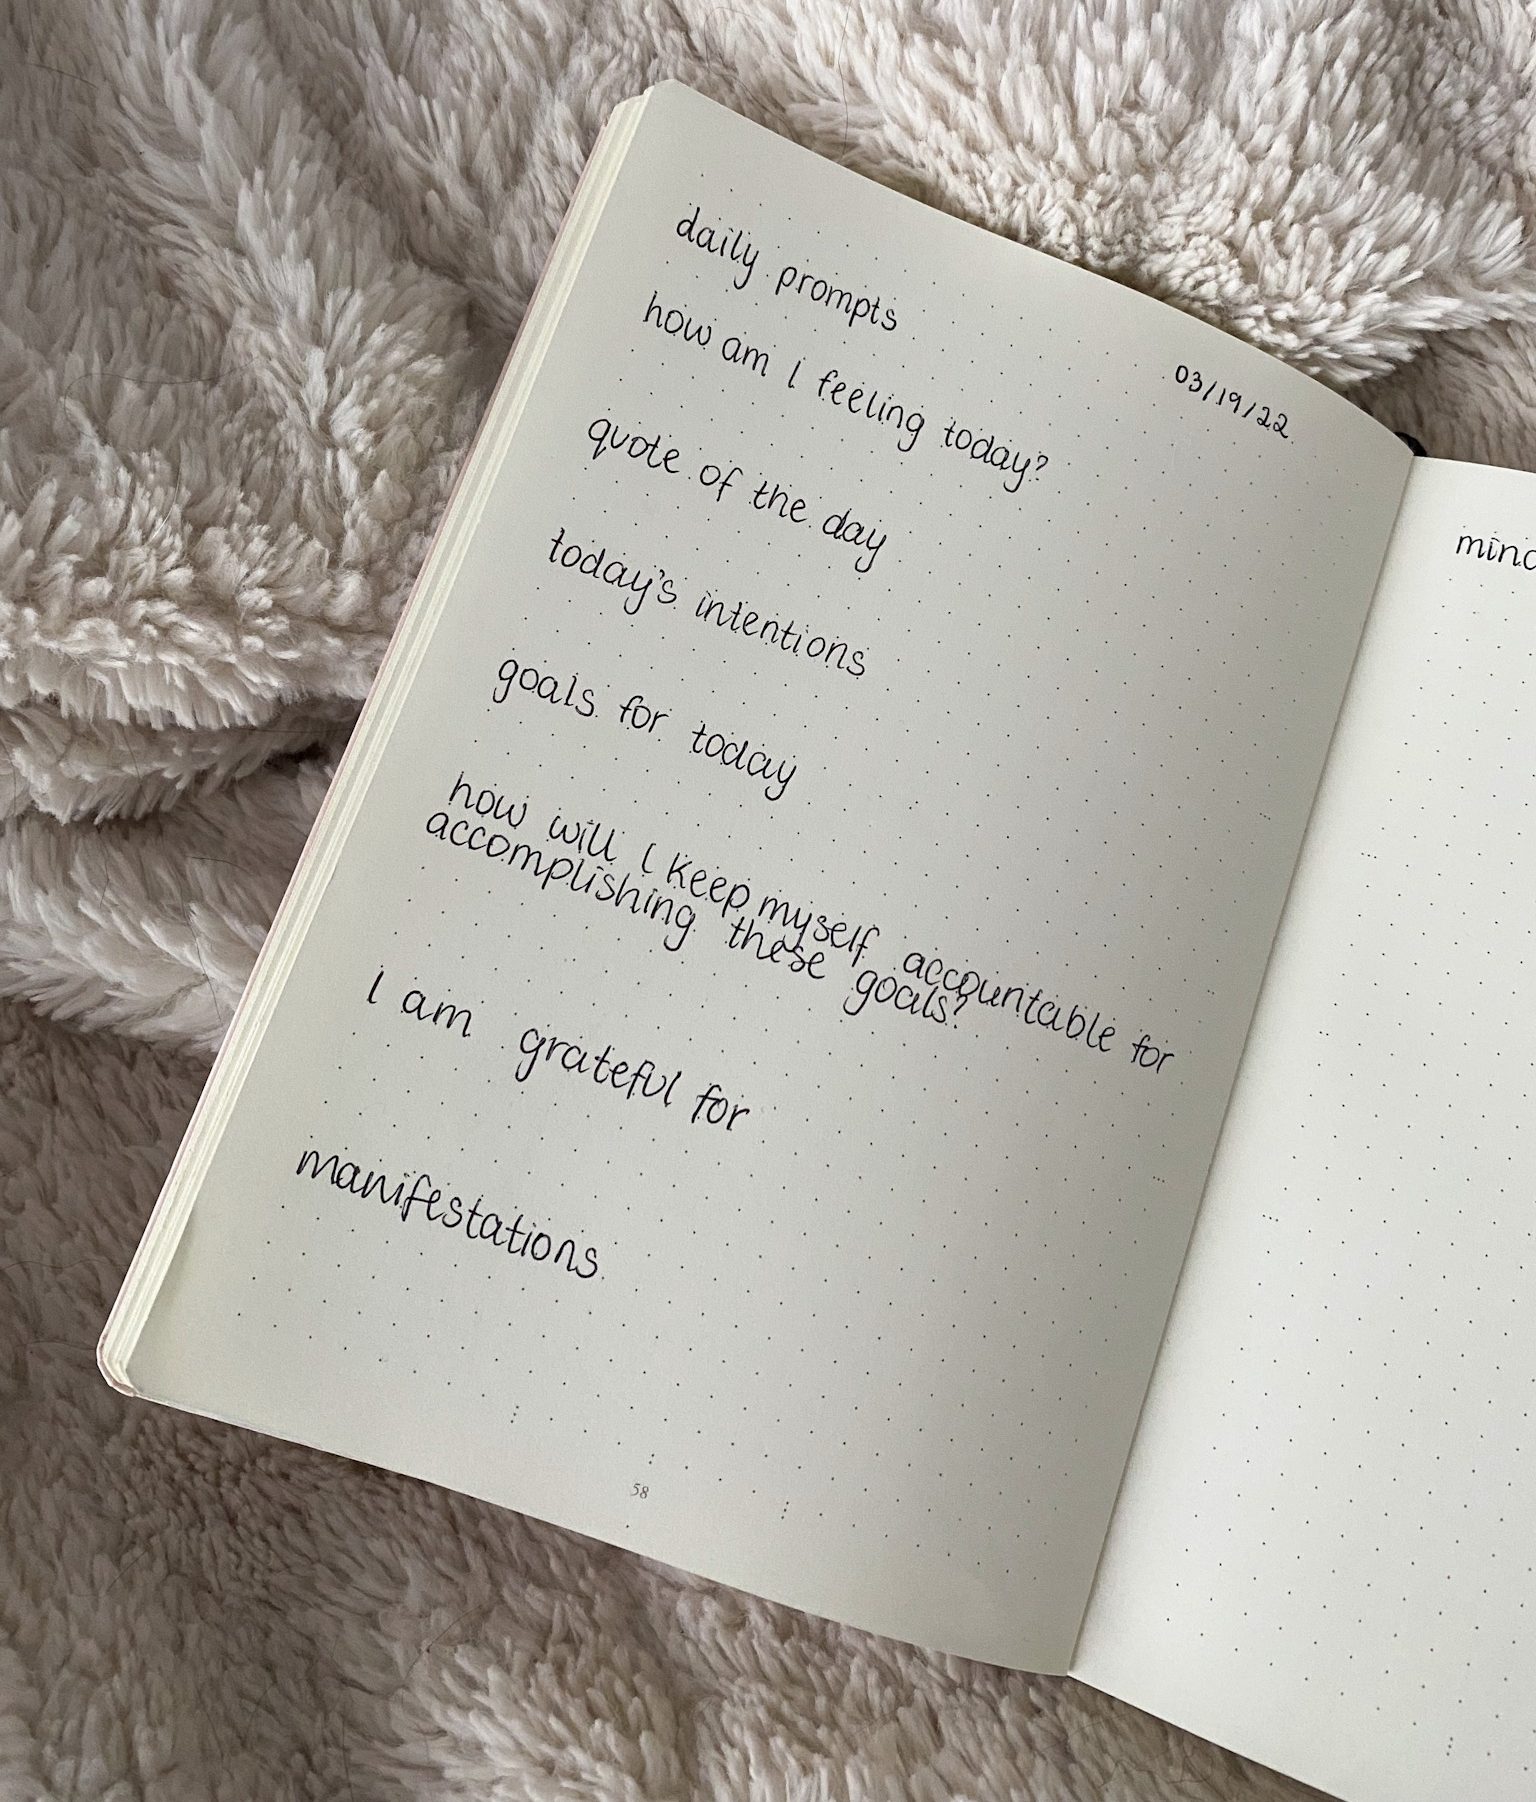 daily prompts
03/19/22
how am I feeling today?
quote of the day
today's intentions
goals for today
how will I keep myself accountable for
accomplishing these goals?
I am grateful for
manifestations
58